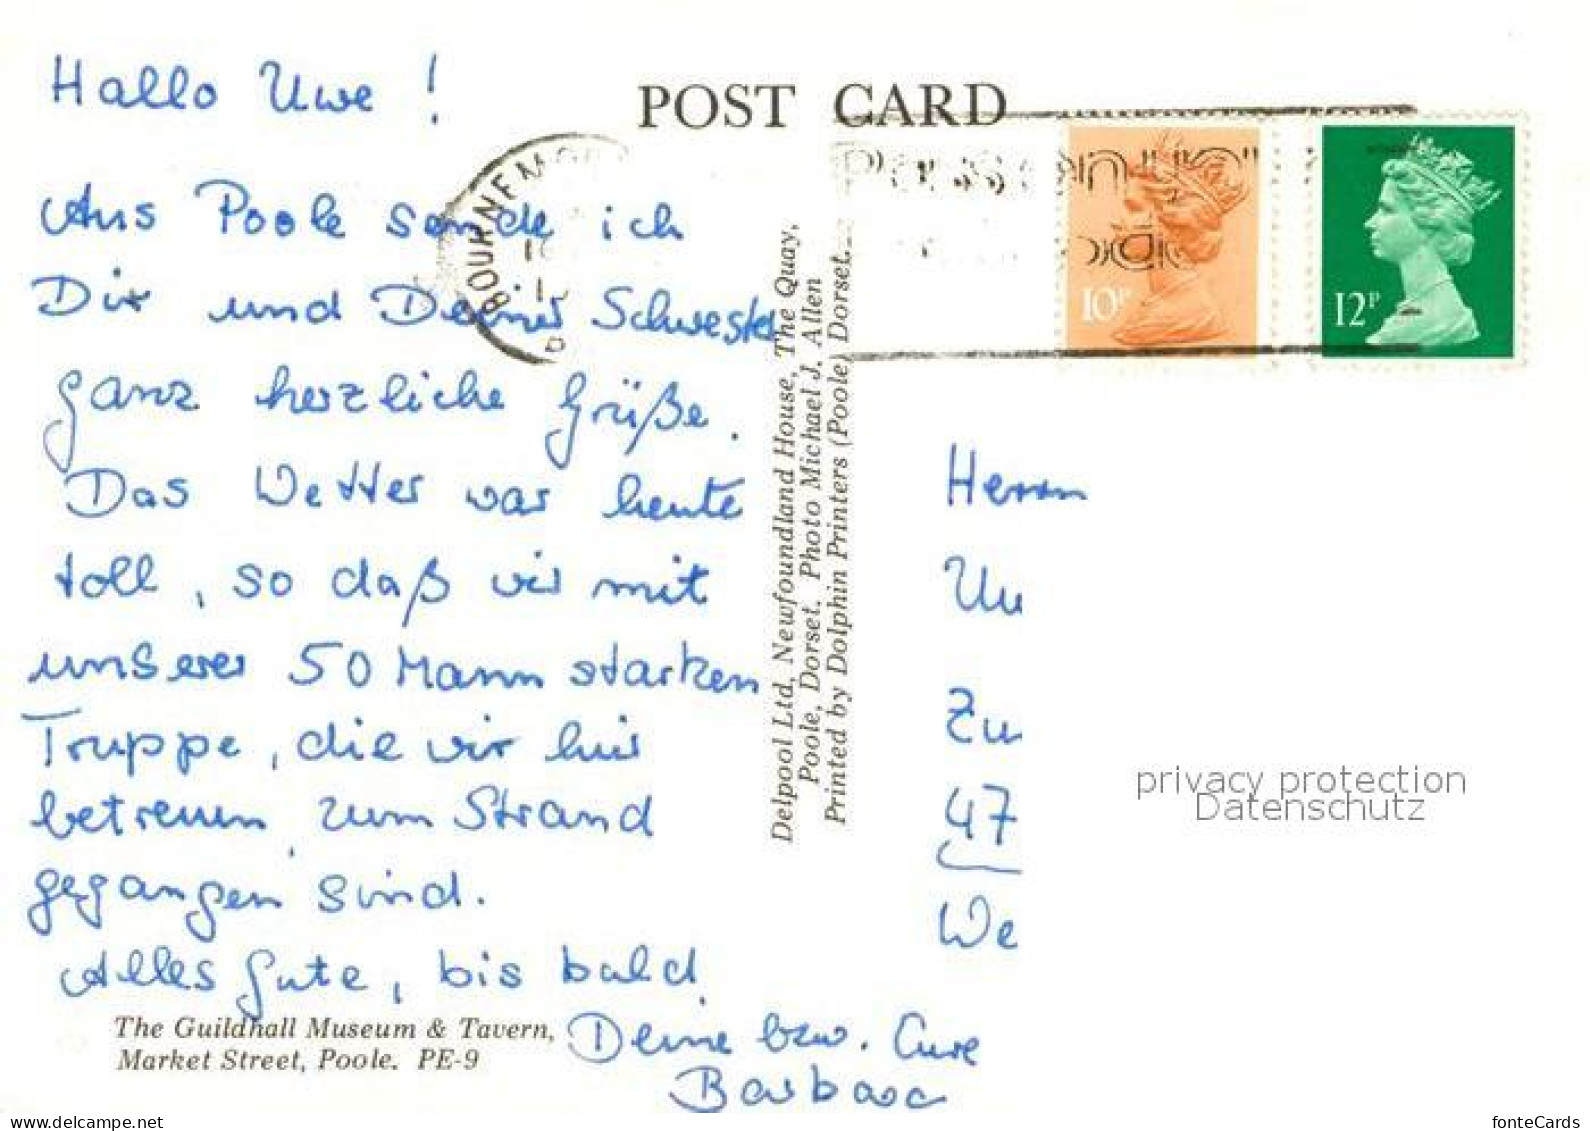 Hallo Uwe !
Aus Poole sende ich
Dir und Deiner Schwester
ganz herzliche Grüße.
Das Wetter war heute
toll, so daß wir mit
unserer 50 Mann starken
Truppe, die wir hier
betreuen, zum Strand
gegangen sind.
Alles Gute, bis bald
Deine bzw. Eure
Barbara
The Guildhall Museum & Tavern,
Market Street, Poole. PE-9
POST CARD
BOURNEMO
Delpool Ltd, Newfoundland House, The Quay,
Poole, Dorset. Photo Michael J. Allen
Printed by Dolphin Printers (Poole) Dorset.
10P
12P
Herrn
Zu
47
We
privacy protection
Datenschutz
www.delcampe.net
fonteCards